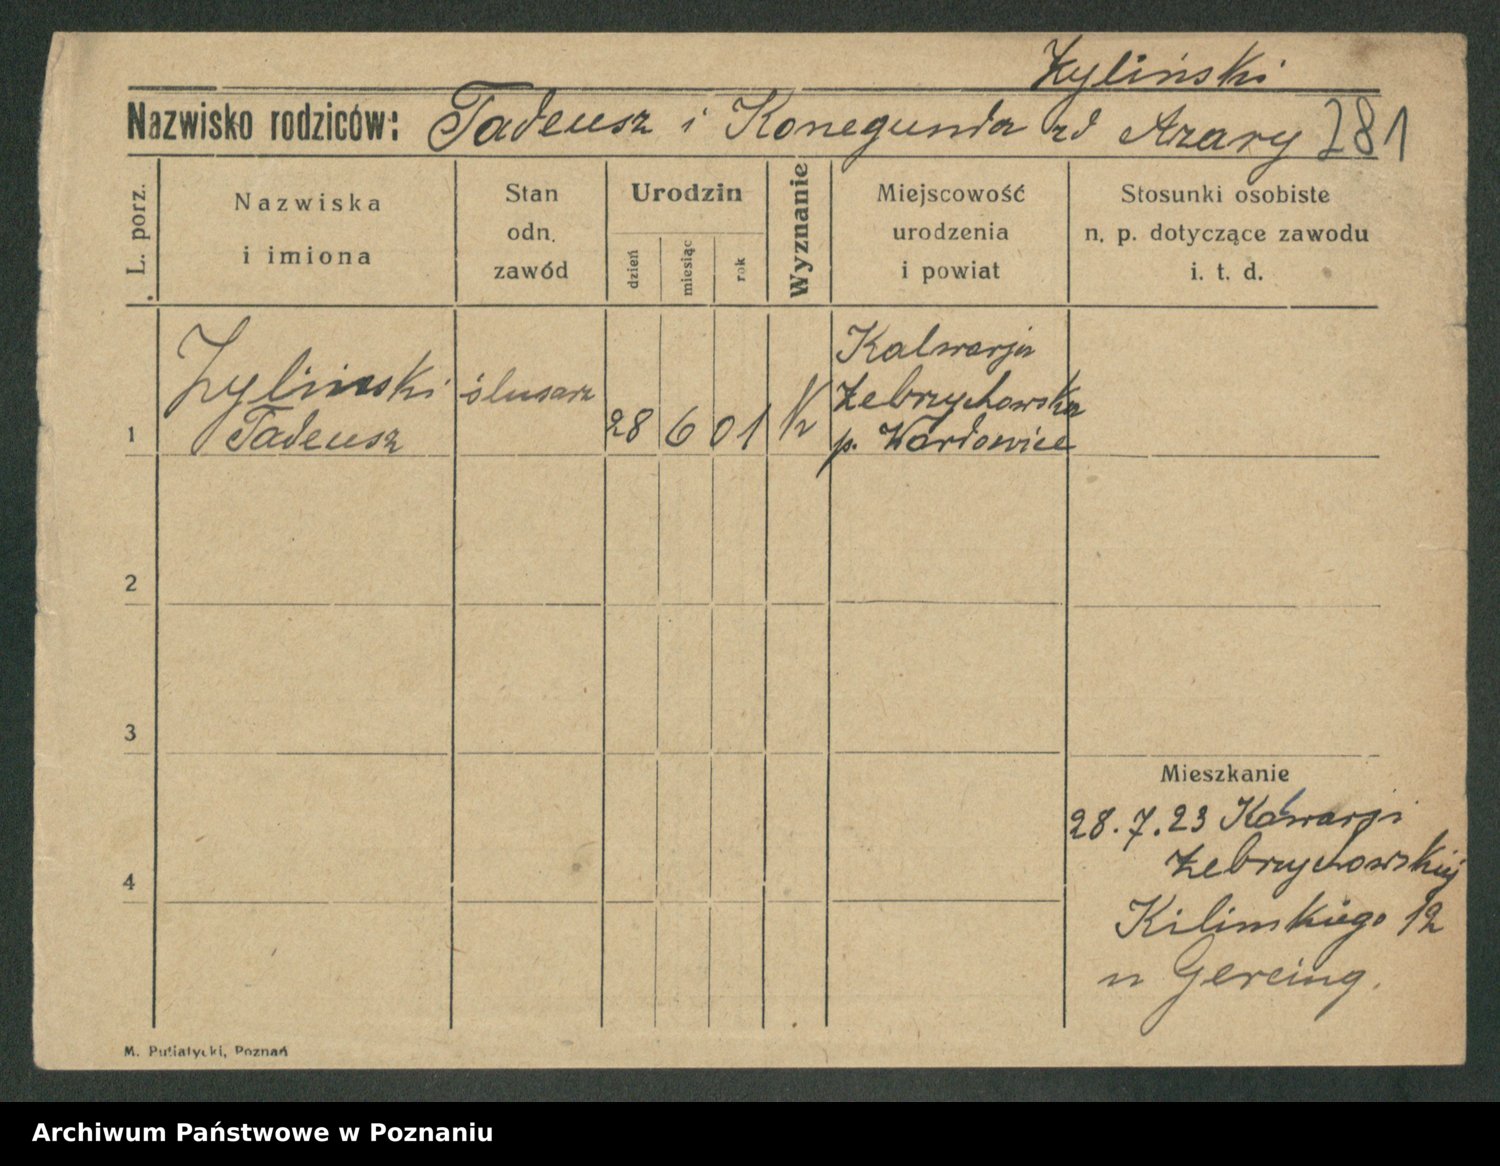 Żyliński
Nazwisko rodziców: Tadeusz i Konegunda zd Azary 281
L. porz.
Nazwiska
i imiona
Stan
odn.
zawód
Urodzin
dzień
miesiąc
rok
Wyznanie
Miejscowość
urodzenia
i powiat
Stosunki osobiste
n. p. dotyczące zawodu
i. t. d.
1
Żyliński
Tadeusz
ślusarz
28
6
01
K
Kalwarja
Żebrzychowska
p.
2
3
4
Mieszkanie
28.7.23 Kalwarji
Żebrzychowskiej
Kilinskiego 12
u Gereing.
M. Putiatycki, Poznań
Archiwum Państwowe w Poznaniu